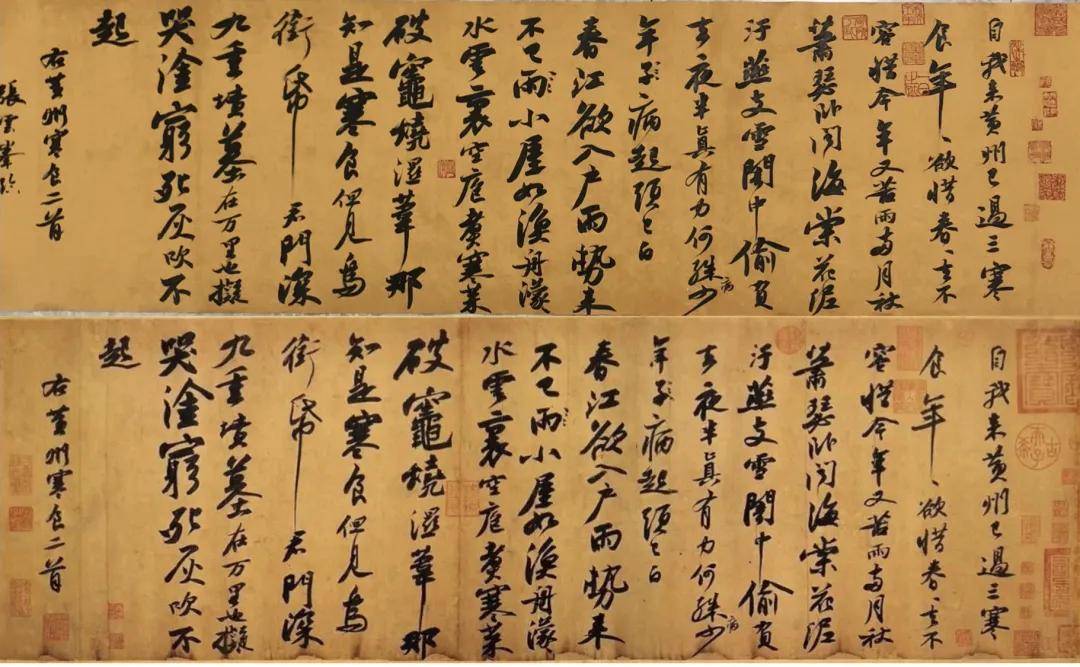 自我来黄州已過三寒
食年〻欲惜春〻去不
容惜今年又苦雨兩月秋
蕭瑟卧聞海棠花泥
汙燕支雪闇中偷負
去夜半真有力何殊病少
年子病起頭已白
春江欲入户雨勢来
不已雨小屋如漁舟濛
水雲裏空庖煮寒菜
破竈燒濕葦那
知是寒食但見烏
銜帋君門深
九重墳墓在万里也擬
哭塗窮死灰吹不
起
右黄州寒食二首
張雲峯臨
自我来黄州已過三寒
食年〻欲惜春〻去不
容惜今年又苦雨兩月秋
蕭瑟卧聞海棠花泥
汙燕支雪闇中偷負
去夜半真有力何殊病少
年子病起頭已白
春江欲入户雨勢来
不已雨小屋如漁舟濛
水雲裏空庖煮寒菜
破竈燒濕葦那
知是寒食但見烏
銜帋君門深
九重墳墓在万里也擬
哭塗窮死灰吹不
起
右黄州寒食二首